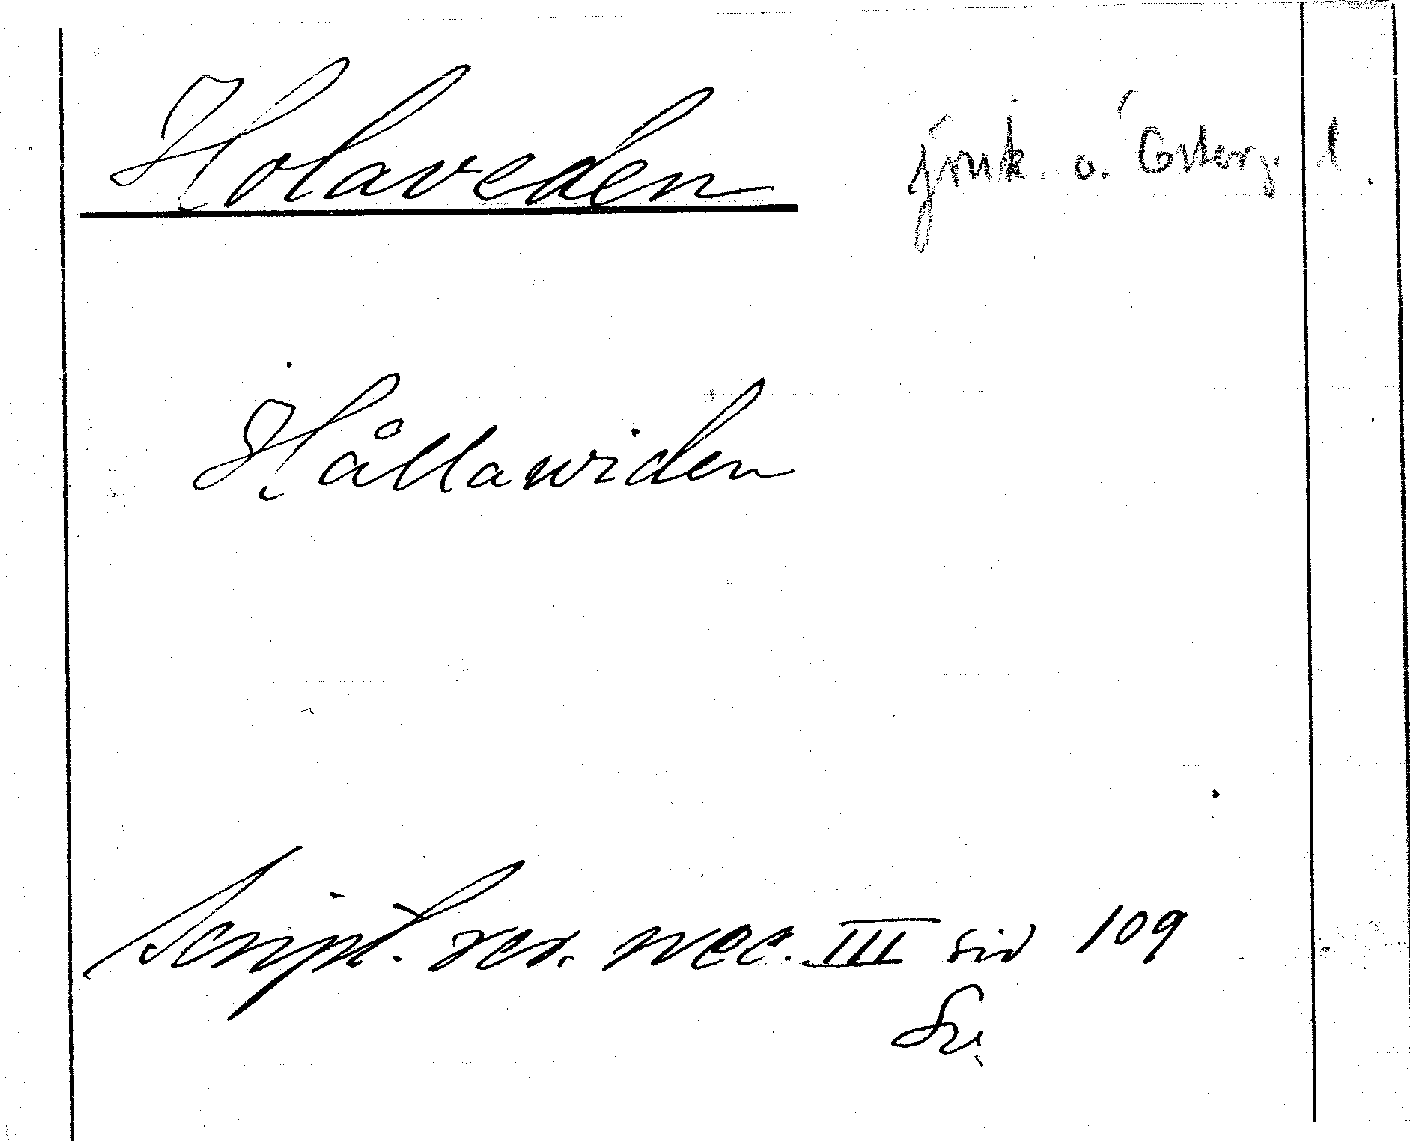 Holaveden jmk. o. Österg. l.
Hållawiden
Script. rer. svec. III sid 109